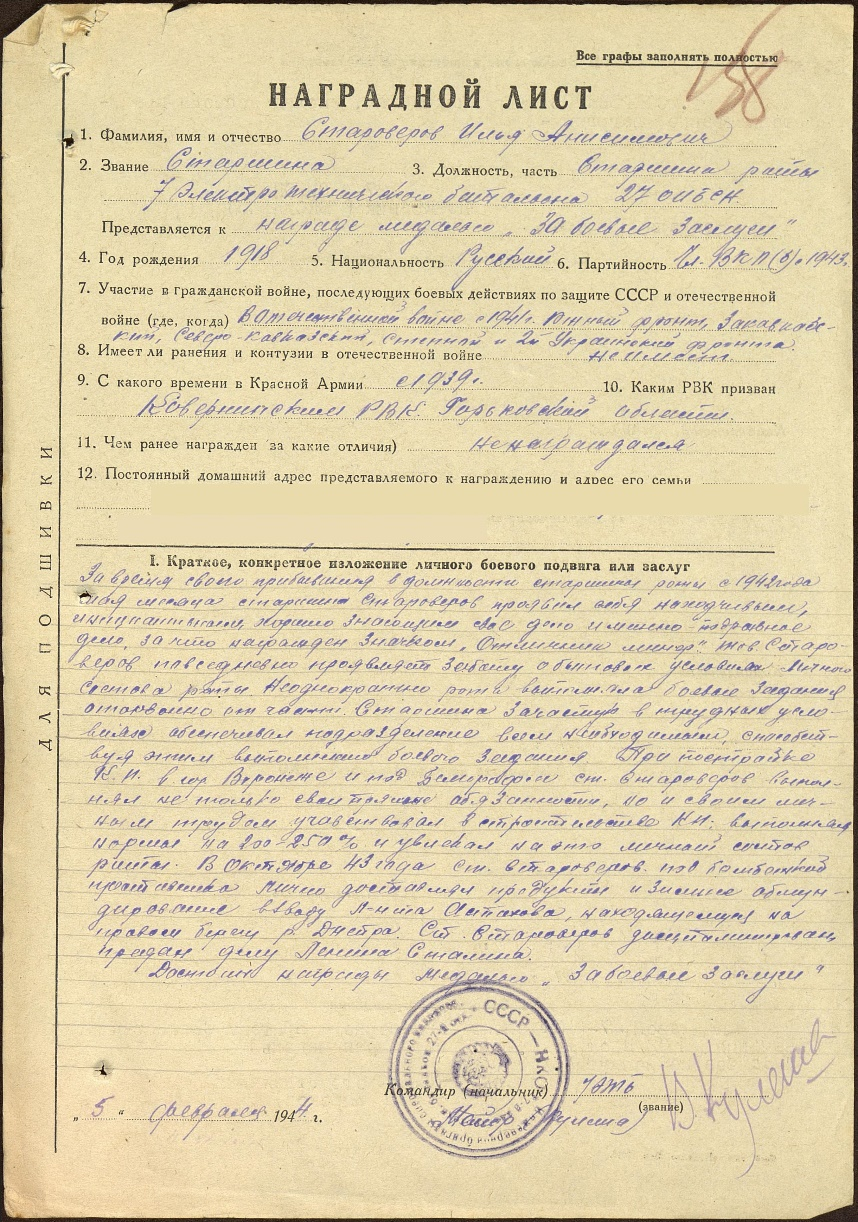 158
Все графы заполнять полностью
НАГРАДНОЙ ЛИСТ
1. Фамилия, имя и отчество Староверов Илья Анисимович
2. Звание Старшина 3. Должность, часть Старшина роты
7 Электротехнического батальона 27 ОИБСН
Представляется к награде медалью „За боевые заслуги"
4. Год рождения 1918 5. Национальность Русский 6. Партийность Чл. ВКП(б) с 1943г.
7. Участие в гражданской войне, последующих боевых действиях по защите СССР и отечественной
войне (где, когда) В Отечественной войне с 1941г. Южный фронт, Закавказс-
кий, Северо-Кавказский, Степной и 2й Украинский фронта.
8. Имеет ли ранения и контузии в отечественной войне не имеет.
9. С какого времени в Красной Армии с 1939г. 10. Каким РВК призван
Ковернинским РВК Горьковской области.
11. Чем ранее награжден (за какие отличия) не награждался
12. Постоянный домашний адрес представляемого к награждению и адрес его семьи
ДЛЯ ПОДШИВКИ
I. Краткое, конкретное изложение личного боевого подвига или заслуг
За время своего пребывания в должности старшины роты с 1942 года
мая месяца старшина Староверов проявил себя находчивым,
инициативным, хорошо знающим свое дело и минно-подрывное
дело, за что награжден значком „Отличник минер". тов. Старо-
веров повседневно проявляет заботу о бытовых условиях личного
состава роты. Неоднократно рота выполняла боевые задания
оторванно от части. Старшина зачастую в трудных усло-
виях обеспечивал подразделение всем необходимым, способст-
вуя этим выполнению боевого задания. При постройке
К.П. в гор. Воронеже и под Белгородом ст. Староверов выпол-
нял не только свои прямые обязанности, но и своим лич-
ным трудом участвовал в строительстве КП, выполняя
нормы на 200-250% и увлекал на это личный состав
роты. В Октябре 43 года ст. Староверов под бомбежкой
противника лично доставлял продукты и зимнее обмун-
дирование взводу Л-нта Астахова, находящемуся на
правом берегу р. Днепра. Ст. Староверов дисциплинирован,
предан делу Ленина Сталина.
Достоин награды медалью „За боевые заслуги"
СССР — НКО
Командир (начальник) 7 ЭТБ
Майор Кулеша)
(звание)
„5" февраля 1944 г.